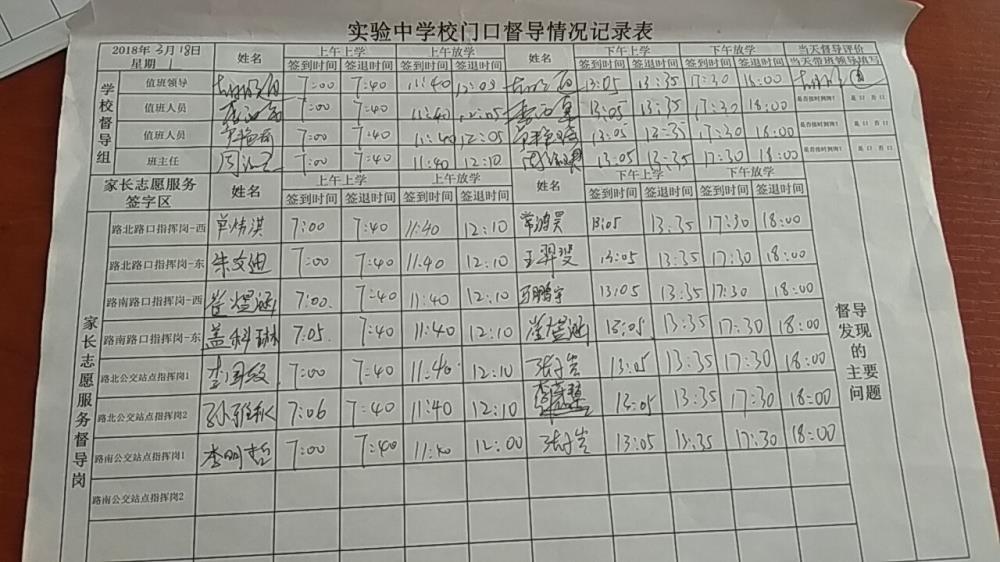 实验中学校门口督导情况记录表
2018年3月18日 星期1 姓名 上午上学 上午放学 姓名 下午上学 下午放学 当天督导评价
签到时间 签退时间 签到时间 签退时间 签到时间 签退时间 签到时间 签退时间 当天带班领导填写
学校督导组
值班领导 7:00 7:40 11:40 12:09 13:05 13:35 17:30 18:00
值班人员 7:00 7:40 11:40 12:05 13:05 13:35 17:30 18:00 是否按时到岗? 是口 否口
值班人员 7:00 7:40 11:40 12:05 13:05 13:35 17:30 18:00 是否按时到岗? 是口 否口
班主任 7:00 7:40 11:40 12:10 13:05 13:35 17:30 18:00 是否按时到岗? 是口 否口
家长志愿服务签字区 姓名 上午上学 上午放学 姓名 下午上学 下午放学
签到时间 签退时间 签到时间 签退时间 签到时间 签退时间 签到时间 签退时间
家长志愿服务督导岗
路北路口指挥岗-西 单炜淇 7:00 7:40 11:40 12:10 常鸿昊 13:05 13:35 17:30 18:00
路北路口指挥岗-东 朱文迪 7:00 7:40 11:40 12:10 王羿斐 13:05 13:35 17:30 18:00
路南路口指挥岗-西 7:00 7:40 11:40 12:10 马鹏宇 13:05 13:35 17:30 18:00
路南路口指挥岗-东 盖科琳 7:05 7:40 11:40 12:10 13:05 13:35 17:30 18:00
路北公交站点指挥岗1 7:00 7:40 11:40 12:10 13:05 13:35 17:30 18:00
路北公交站点指挥岗2 7:06 7:40 11:40 12:10 13:05 13:35 17:30 18:00
路南公交站点指挥岗1 李明哲 7:00 7:40 11:40 12:00 13:05 13:35 17:30 18:00
路南公交站点指挥岗2
督导发现的主要问题